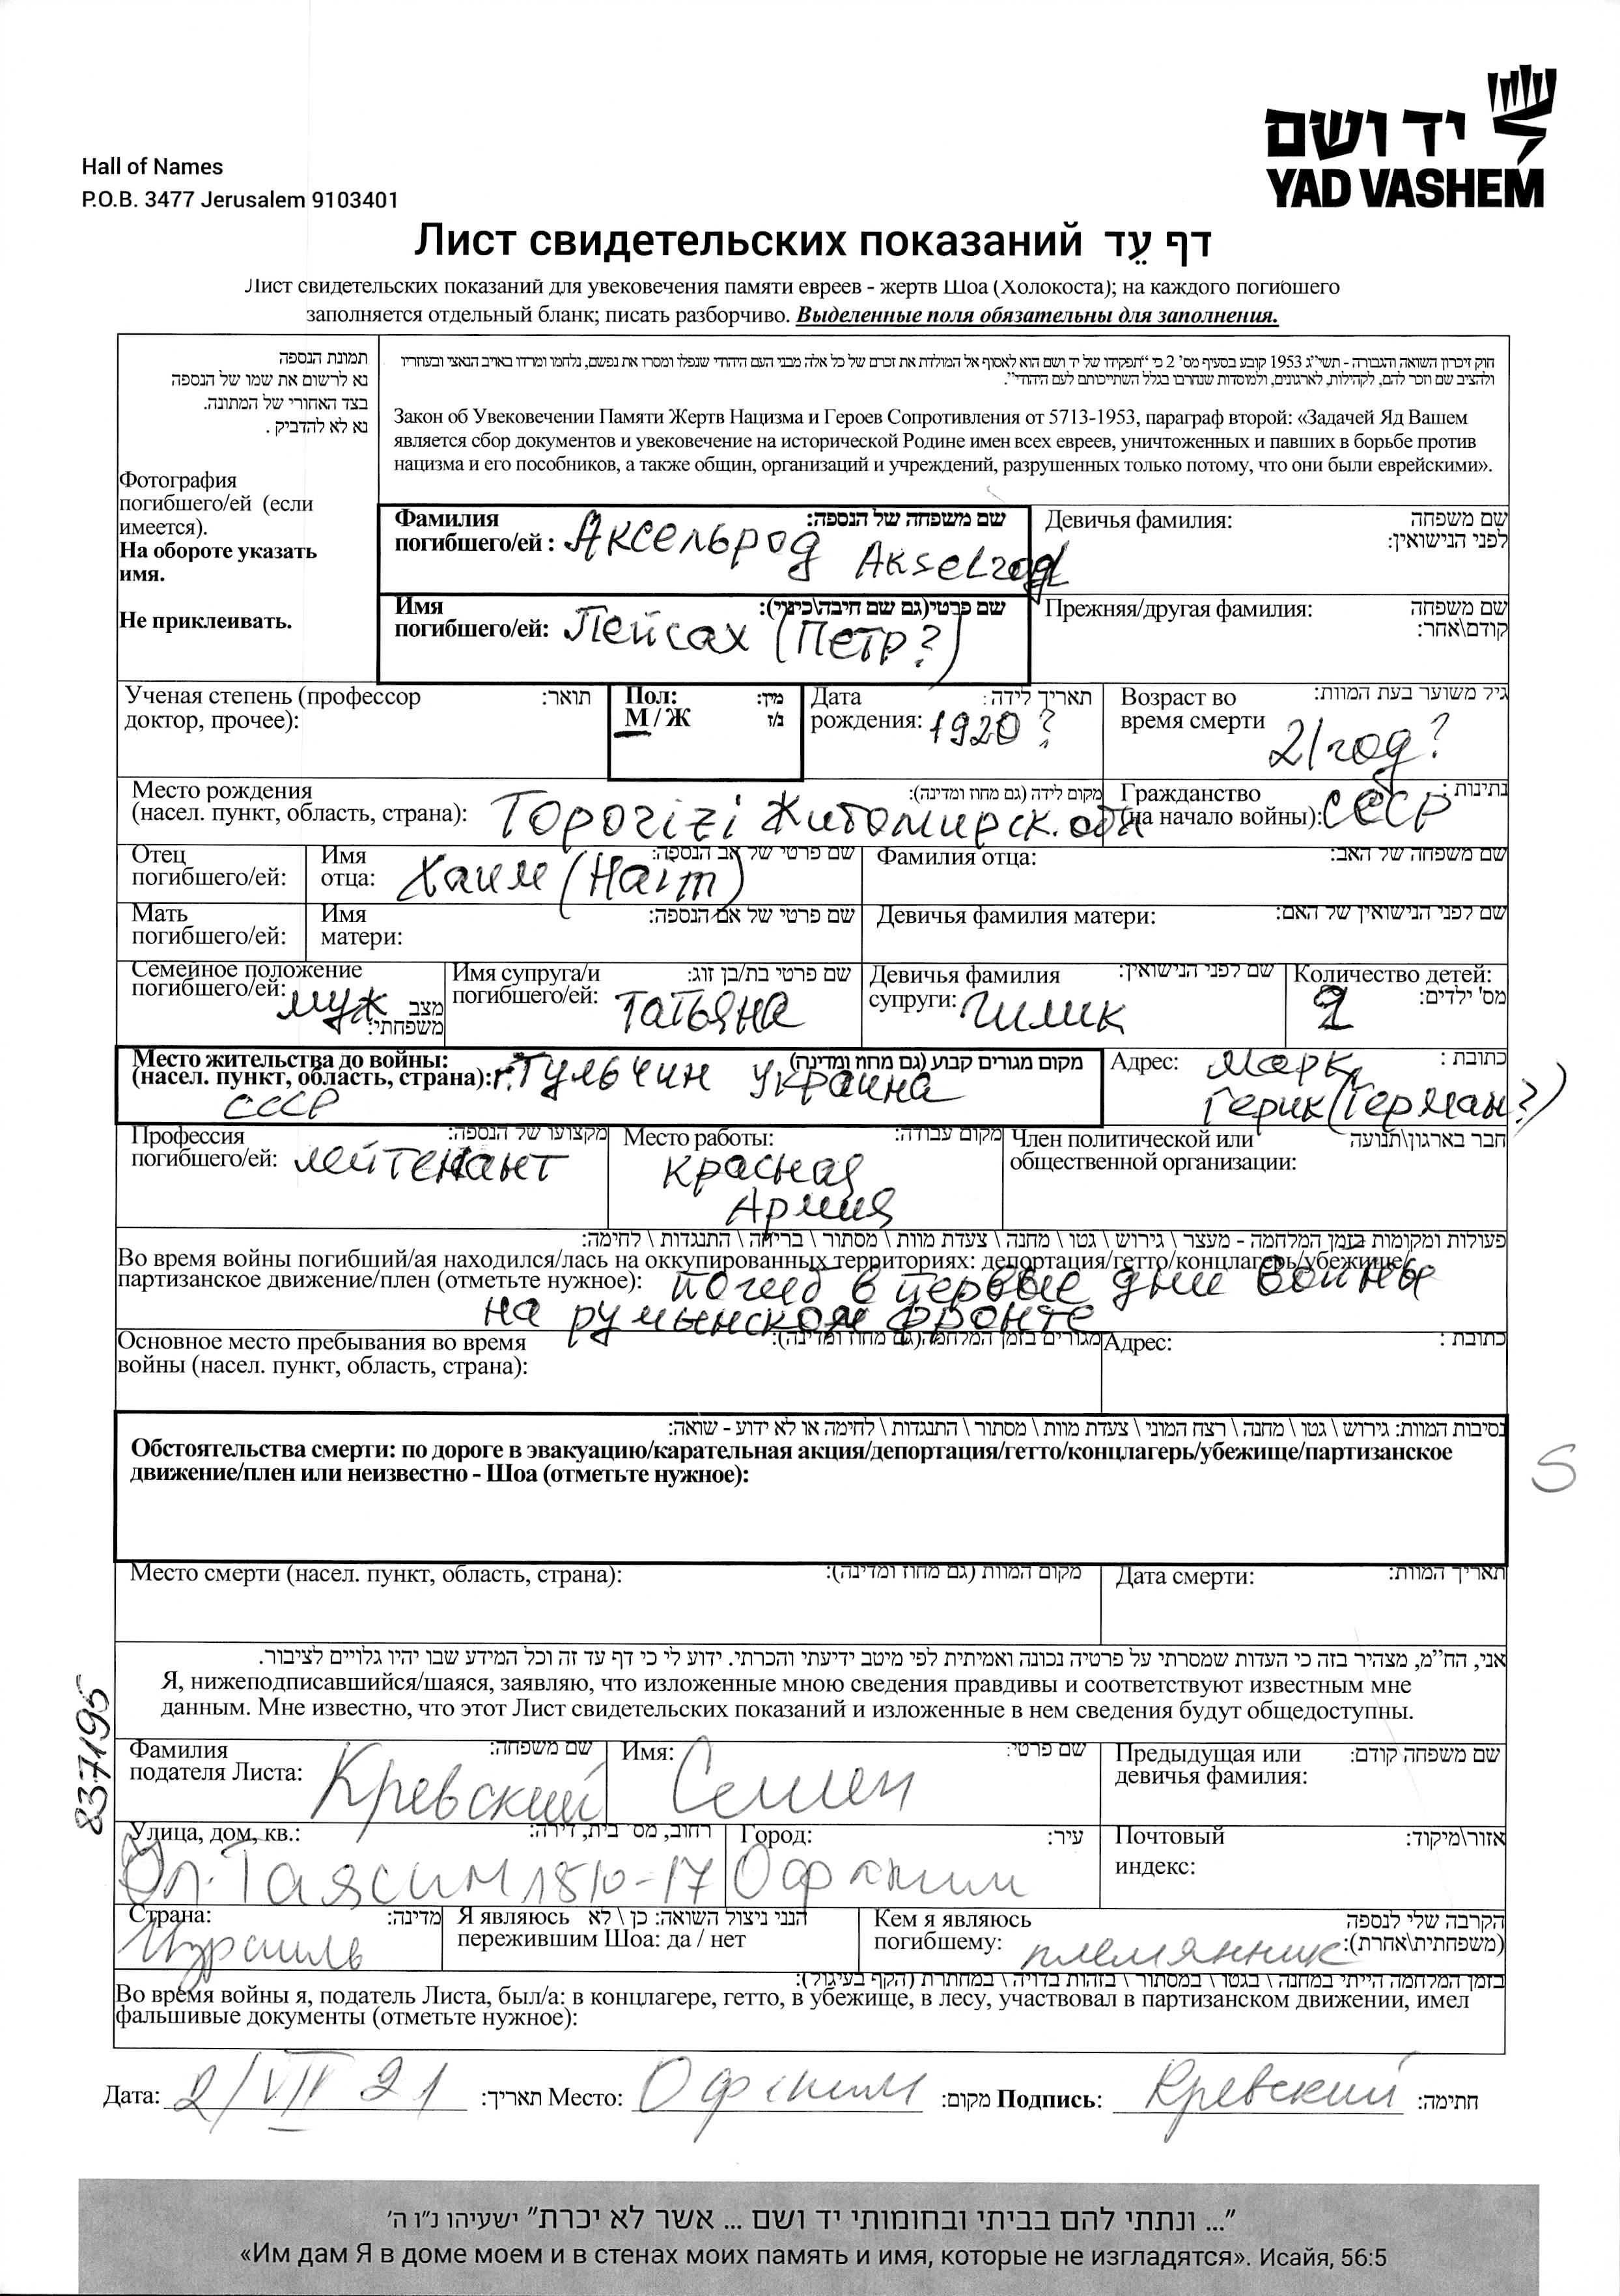 יד ושם
YAD VASHEM
Hall of Names
P.O.B. 3477 Jerusalem 9103401
Лист свидетельских показаний דף עֵד
Лист свидетельских показаний для увековечения памяти евреев - жертв Шоа (Холокоста); на каждого погибшего
заполняется отдельный бланк; писать разборчиво. Выделенные поля обязательны для заполнения.
תמונת הנספה
נא לרשום את שמו של הנספה
בצד האחורי של המתונה.
נא לא להדביק .
Фотография
погибшего/ей (если
имеется).
На обороте указать
имя.
Не приклеивать.
חוק זיכרון השואה והגבורה - תשי"ג 1953 קובע בסעיף מס' 2 כי "תפקידו של יד ושם הוא לאסוף אל המולדת את זכרם של כל אלה מבני העם היהודי שנפלו ומסרו את נפשם, נלחמו ומרדו באויב הנאצי ובעוזריו
ולהציב שם וזכר להם, לקהילות, לארגונים, ולמוסדות שנחרבו בגלל השתייכותם לעם היהודי".
Закон об Увековечении Памяти Жертв Нацизма и Героев Сопротивления от 5713-1953, параграф второй: «Задачей Яд Вашем
является сбор документов и увековечение на исторической Родине имен всех евреев, уничтоженных и павших в борьбе против
нацизма и его пособников, а также общин, организаций и учреждений, разрушенных только потому, что они были еврейскими».
Фамилия שם משפחה של הנספה:
погибшего/ей : Аксельрод Akselrod
Девичья фамилия: שם משפחה
לפני הנישואין:
Имя שם פרטי(גם שם חיבה\כינוי):
погибшего/ей: Пейсах (Петр?)
Прежняя/другая фамилия: שם משפחה
קודם\אחר:
Ученая степень (профессор תואר:
доктор, прочее):
Пол: מין:
М / Ж ז/נ
Дата תאריך לידה:
рождения: 1920 ?
Возраст во גיל משוער בעת המוות:
время смерти 21 год?
Место рождения מקום לידה (גם מחוז ומדינה):
(насел. пункт, область, страна): Житомирск. обл
Гражданство נתינות :
(на начало войны): СССР
Отец
погибшего/ей:
Имя שם פרטי של אב הנספה:
отца: Хаим (Haim)
Фамилия отца: שם משפחה של האב:
Мать
погибшего/ей:
Имя שם פרטי של אם הנספה:
матери:
Девичья фамилия матери: שם לפני הנישואין של האם:
Семейное положение
погибшего/ей: муж מצב
משפחתי:
Имя супруга/и שם פרטי בת/בן זוג:
погибшего/ей: Татьяна
Девичья фамилия שם לפני הנישואין:
супруги: Гилик
Количество детей:
2 מס' ילדים:
Место жительства до войны: מקום מגורים קבוע (גם מחוז ומדינה)
(насел. пункт, область, страна): г.Тульчин Украина
СССР
Адрес: Марк, כתובת :
Герик (Герман?)
Профессия מקצועו של הנספה:
погибшего/ей: лейтенант
Место работы: מקום עבודה:
Красная
Армия
Член политической или חבר בארגון\תנועה
общественной организации:
פעולות ומקומות בזמן המלחמה - מעצר \ גירוש \ גטו \ מחנה \ צעדת מוות \ מסתור \ בריחה \ התנגדות \ לחימה:
Во время войны погибший/ая находился/лась на оккупированных территориях: депортация/гетто/концлагерь/убежище/
партизанское движение/плен (отметьте нужное): погиб в первые дни войны
на румынском фронте
Основное место пребывания во время מגורים בזמן המלחמה(גם מחוז ומדינה):
войны (насел. пункт, область, страна):
Адрес: כתובת :
נסיבות המוות: גירוש \ גטו \ מחנה \ רצח המוני \ צעדת מוות \ מסתור \ התנגדות \ לחימה או לא ידוע - שואה:
Обстоятельства смерти: по дороге в эвакуацию/карательная акция/депортация/гетто/концлагерь/убежище/партизанское
движение/плен или неизвестно - Шоа (отметьте нужное):
S
Место смерти (насел. пункт, область, страна): מקום המוות (גם מחוז ומדינה):
Дата смерти: תאריך המוות:
אני, הח"מ, מצהיר בזה כי העדות שמסרתי על פרטיה נכונה ואמיתית לפי מיטב ידיעתי והכרתי. ידוע לי כי דף עד זה וכל המידע שבו יהיו גלויים לציבור.
Я, нижеподписавшийся/шаяся, заявляю, что изложенные мною сведения правдивы и соответствуют известным мне
данным. Мне известно, что этот Лист свидетельских показаний и изложенные в нем сведения будут общедоступны.
837195
Фамилия שם משפחה:
подателя Листа: Кревский
Имя: Семен שם פרטי:
Предыдущая или שם משפחה קודם:
девичья фамилия:
Улица, дом, кв.: רחוב, מס' בית, דירה:
Ул. Таясим 1510-17
Город: עיר:
Офаким
Почтовый אזור\מיקוד:
индекс:
Страна: מדינה:
Израиль
Я являюсь הנני ניצול השואה: כן \ לא
пережившим Шоа: да / нет
Кем я являюсь הקרבה שלי לנספה
погибшему: племянник (משפחתית\אחרת):
בזמן המלחמה הייתי במחנה \ בגטו \ במסתור \ בזהות בדויה \ במחתרת (הקף בעיגול):
Во время войны я, податель Листа, был/а: в концлагере, гетто, в убежище, в лесу, участвовал в партизанском движении, имел
фальшивые документы (отметьте нужное):
Дата: 2/VII 21 תאריך: Место: Офаким מקום: Подпись: Кревский חתימה:
"... ונתתי להם בביתי ובחומותי יד ושם ... אשר לא יכרת" ישעיהו נ"ו ה'
«Им дам Я в доме моем и в стенах моих память и имя, которые не изгладятся». Исайя, 56:5